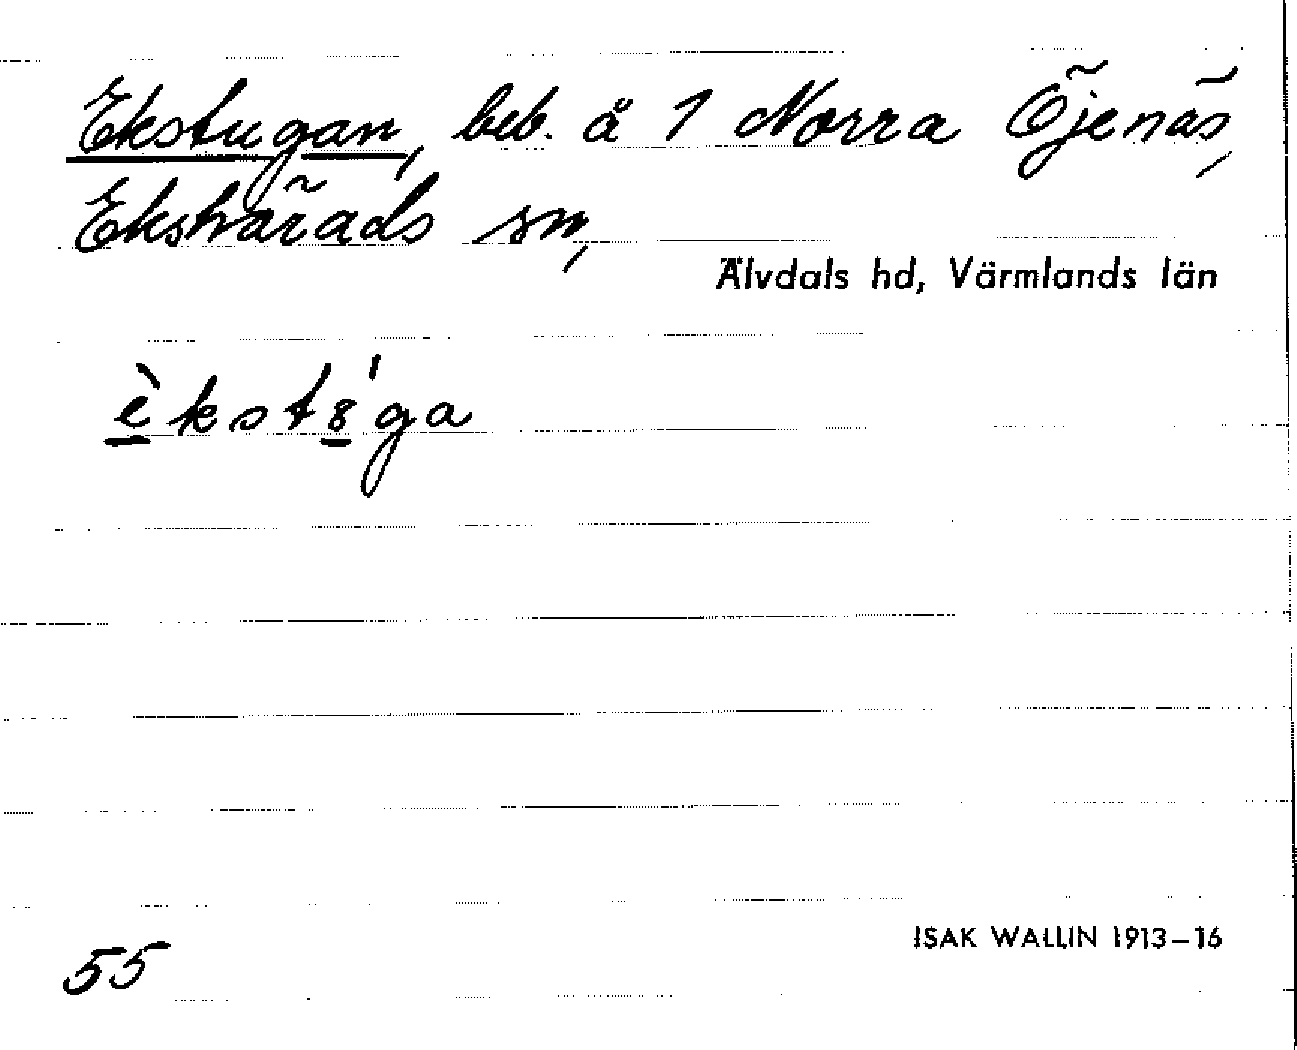 Ekstugan, beb. å 1 Norra Öjenäs,
Ekshärads sn,
Älvdals hd, Värmlands län
èkst8'ga
ISAK WALLIN 1913–16
55